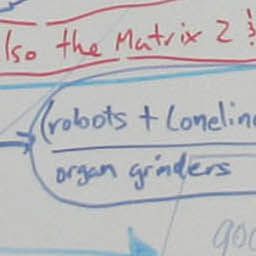 lso the Matrix 2 &
(robots + Lonelin
organ grinders
goo